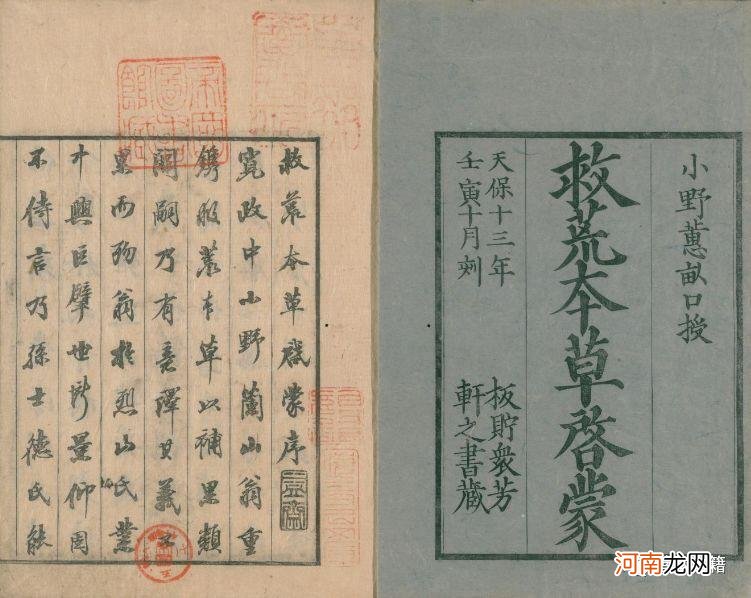 小野蕙畝口授
救荒本草啓蒙
天保十三年
壬寅十月刻
板貯衆芳
軒之書藏
救荒本草啓蒙序
寛政中小野蘭山翁重
鐫救荒本草以補果類
嗣乃有意譯其義不
果而歿翁於烈山氏之業
巨擘世所景仰固
不待言乃孫士德氏能
籍
河南龙网